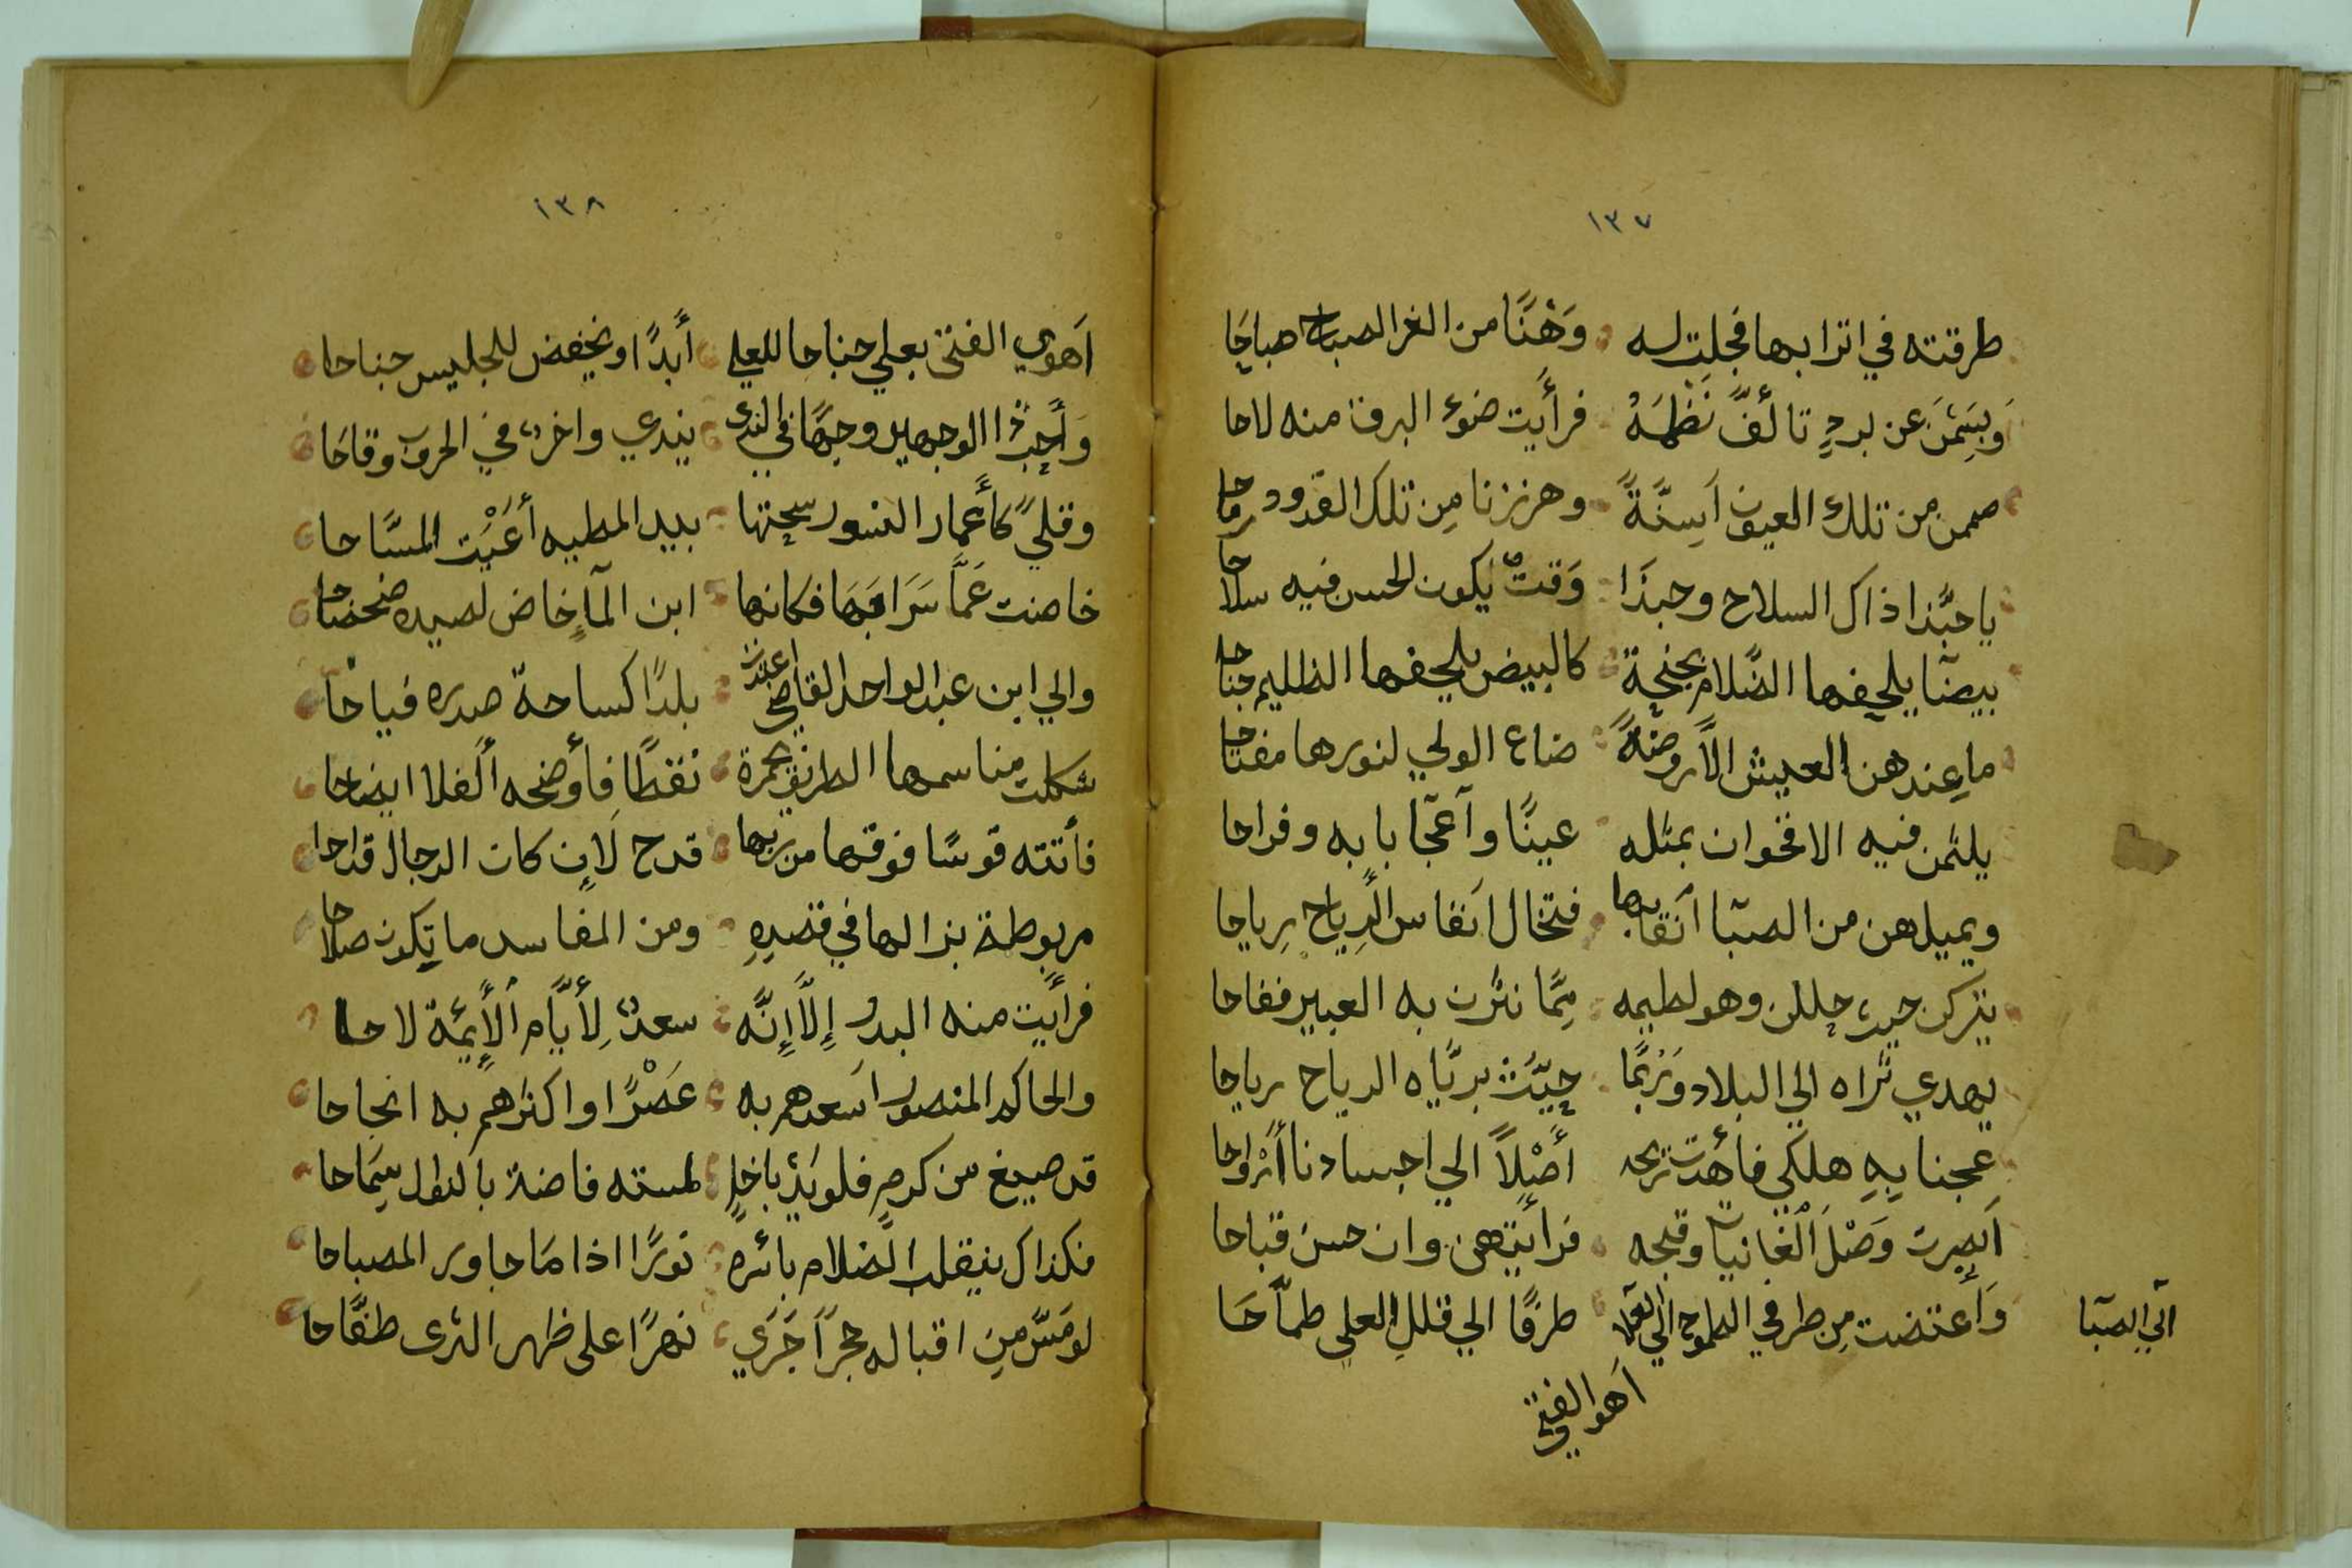 ١٣٧
طرقته في اترابها فجلت له وَهْنًا من الغر الصباح صباحَا
وَبسَمْنَ عن بردٍ تألفَّ نَظْمَهُ فرأَيت ضوء البرق منه لاحا
صممن من تلك العيون اَسِنَّةً وهززنا مِن تلك القدود رماحا
يا حبَّذا ذاك السلاح وحبذَا وَقتٌ يكون الحسن فيه سلاحا
بيضًا يلحفها الضَّلام بجنحة كالبيض يلحفها الظليم جناحا
ما عِندهن العيش الاَّ روضةً ضاع الولي لنورها مفتاحا
يلثمن فيه الاقحوان بمثله عينًا وآعجَابا به وفراحا
ويميلهن من الصبّا اَنقابها فتخال اَنفاس الرِياح رِياحا
يتركن حيث حللن وهو لطيمه مِمَّا نثرن به العبير ففاحا
يهدي ثراه الي البلاد وَرُبمَّا حيَّتْ بريَّاه الرياح رياحا
عِجنا بِهِ هلكي فأهدت تربحه أَصْلاً الي اجسادنا أَرْواحا
اَبصرت وَصْلَ اُلْغَانيات وقبحه فرأيتهن وان حسن قباحا
وَاَعتضت مِن طرفي الطموح الي العلا طرفًا الي قلل العلي طماَّحَا
الي الصبَا
اَهوا الفتي
١٣٨
اَهوي الفتى يعلي جناحا للعلي أَبَدًا ويخفض للجليس جناحا
وَأَحِبّ ذا الوجهين وجهًا في الندى يندي واخرٌ في الحرب وقاحَا
وقلىً كأَعمار النسور سحبتها بيد المطيه أَعْيَت المسَّاحا
خاضت عَمَّا سَرَابهَا فكانها ابن الماَءِ خاض لصيده ضحضاحا
والي ابن عبد الواحد القاضي اعتدت بلدًا كساحة صدره فياحًا
شكلت مناسمها الطريق بحمرة نقطًا فأوضحه الَفلا ايضاحا
فأتته قوسًا فوقها من ربها قدح لاَن كان الرجال قداحا
مربوطة بنرالها في قصدِهِ ومن المفاسد ما يكون صلاحا
فرأَيت منه البدر إِلاَّ إِنَّه سعدٌ لِأَيَّام اُلْأَيِمَّة لاحا
والحاكم المنصور اَسعدهم به عَصْرًا واكثرهم به انجاحا
قد صيغ من كرمٍ فلو يَدْ باخلٍ لمسته فاضة بالنوال سِمَاحا
فكذاك ينقلب الضَّلام باثره نورًا اذا مَا جاور المصباحا
لو مَسَّ مِن اقباله حجراً جَرَي نهرًا على ظهر الثرى طفَّاحا